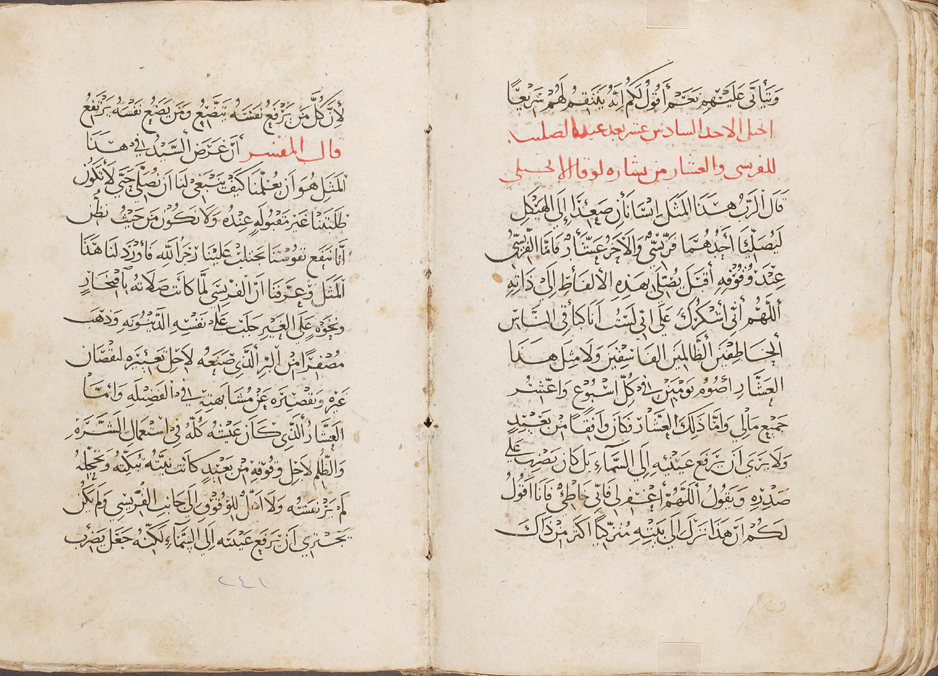 ويتأتى عليهم نعم أقول لكم إنه ينتقم لهم سريعًا
انجل الاحد السادس عشر بعد عيد الصليب
للفريسي والعشار من بشاره لوقا الانجيلي
قال الرب هذا المثل انسانان صعدا إلى الهيكل
ليصليا أحدهما فريسي والاخر عشار فاما الفريسي
عند وقوفه أقبل يصلي بهذه الالفاظ إلى ذاته
أللهم أني أشكرك على اني لست أنا كباقي الناس
الخاطفين الظالمين الفاسقين ولا مثل هذا
العشار اصوم يومين في كل اسبوع واعشر
جميع مالي واما ذلك العشار فكان واقفًا من بعيد
ولا يرى ان يرفع عينيه إلى السماء بل كان يضرب على
صدره ويقول أللهم أغفر لي فاني خاطئ فانا أقول
لكم ان هذا نزل الى بيته مزكيًا اكثر من ذاك
لأن كل من يرفع نفسه يتضع ومن يضع نفسه يرتفع
قال المفسر أن غرض السيد في هذا
المثل هو أن يعلمنا كيف ينبغي لنا أن نصلي حتى لا تكون
طلبتنا غير مقبوله عنده ولا تكون من حيث نظن
أنا ننفع نفوسنا نجتلب علينا رجز الله فاورد لنا هذا
المثل وعرفنا ان الفريسي لما كانت صلاته بافتخار
ونخوه على الغير جلبت على نفسه الدينونه وذهب
مصفرًا من البر الذي صنعه لاجل تعييره لنقصان
غيره وتقصيره عن مشابهته في الفضيله وأما
العشار الذي كان عيشه كله في استعمال الشره
والظلم لاجل وقوفه من بعيد كانت نيته تبكته وتخجله
لم ير نفسه ولا اهلًا للوقوف الى جانب الفريسي ولم يكن
يجتري ان يرفع عينيه إلى السماء لكنه جعل يضرب
٢٤١